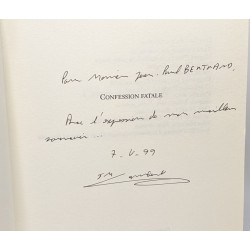 Pour Monsieur Jean-Paul BERTRAND
CONFESSION FATALE
Avec l'expression de mon meilleur
souvenir...
7.V.99